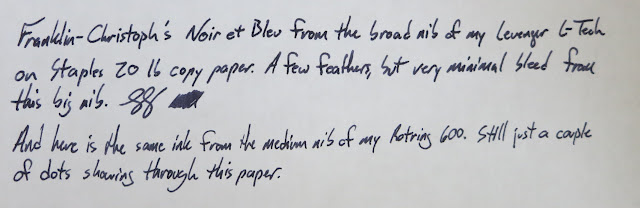 Franklin-Christoph's Noir et Bleu from the broad nib of my Levenger L-Tech
on Staples 20 lb copy paper. A few feathers, but very minimal bleed from
this big nib.
And here is the same ink from the medium nib of my Rotring 600. Still just a couple
of dots showing through this paper.